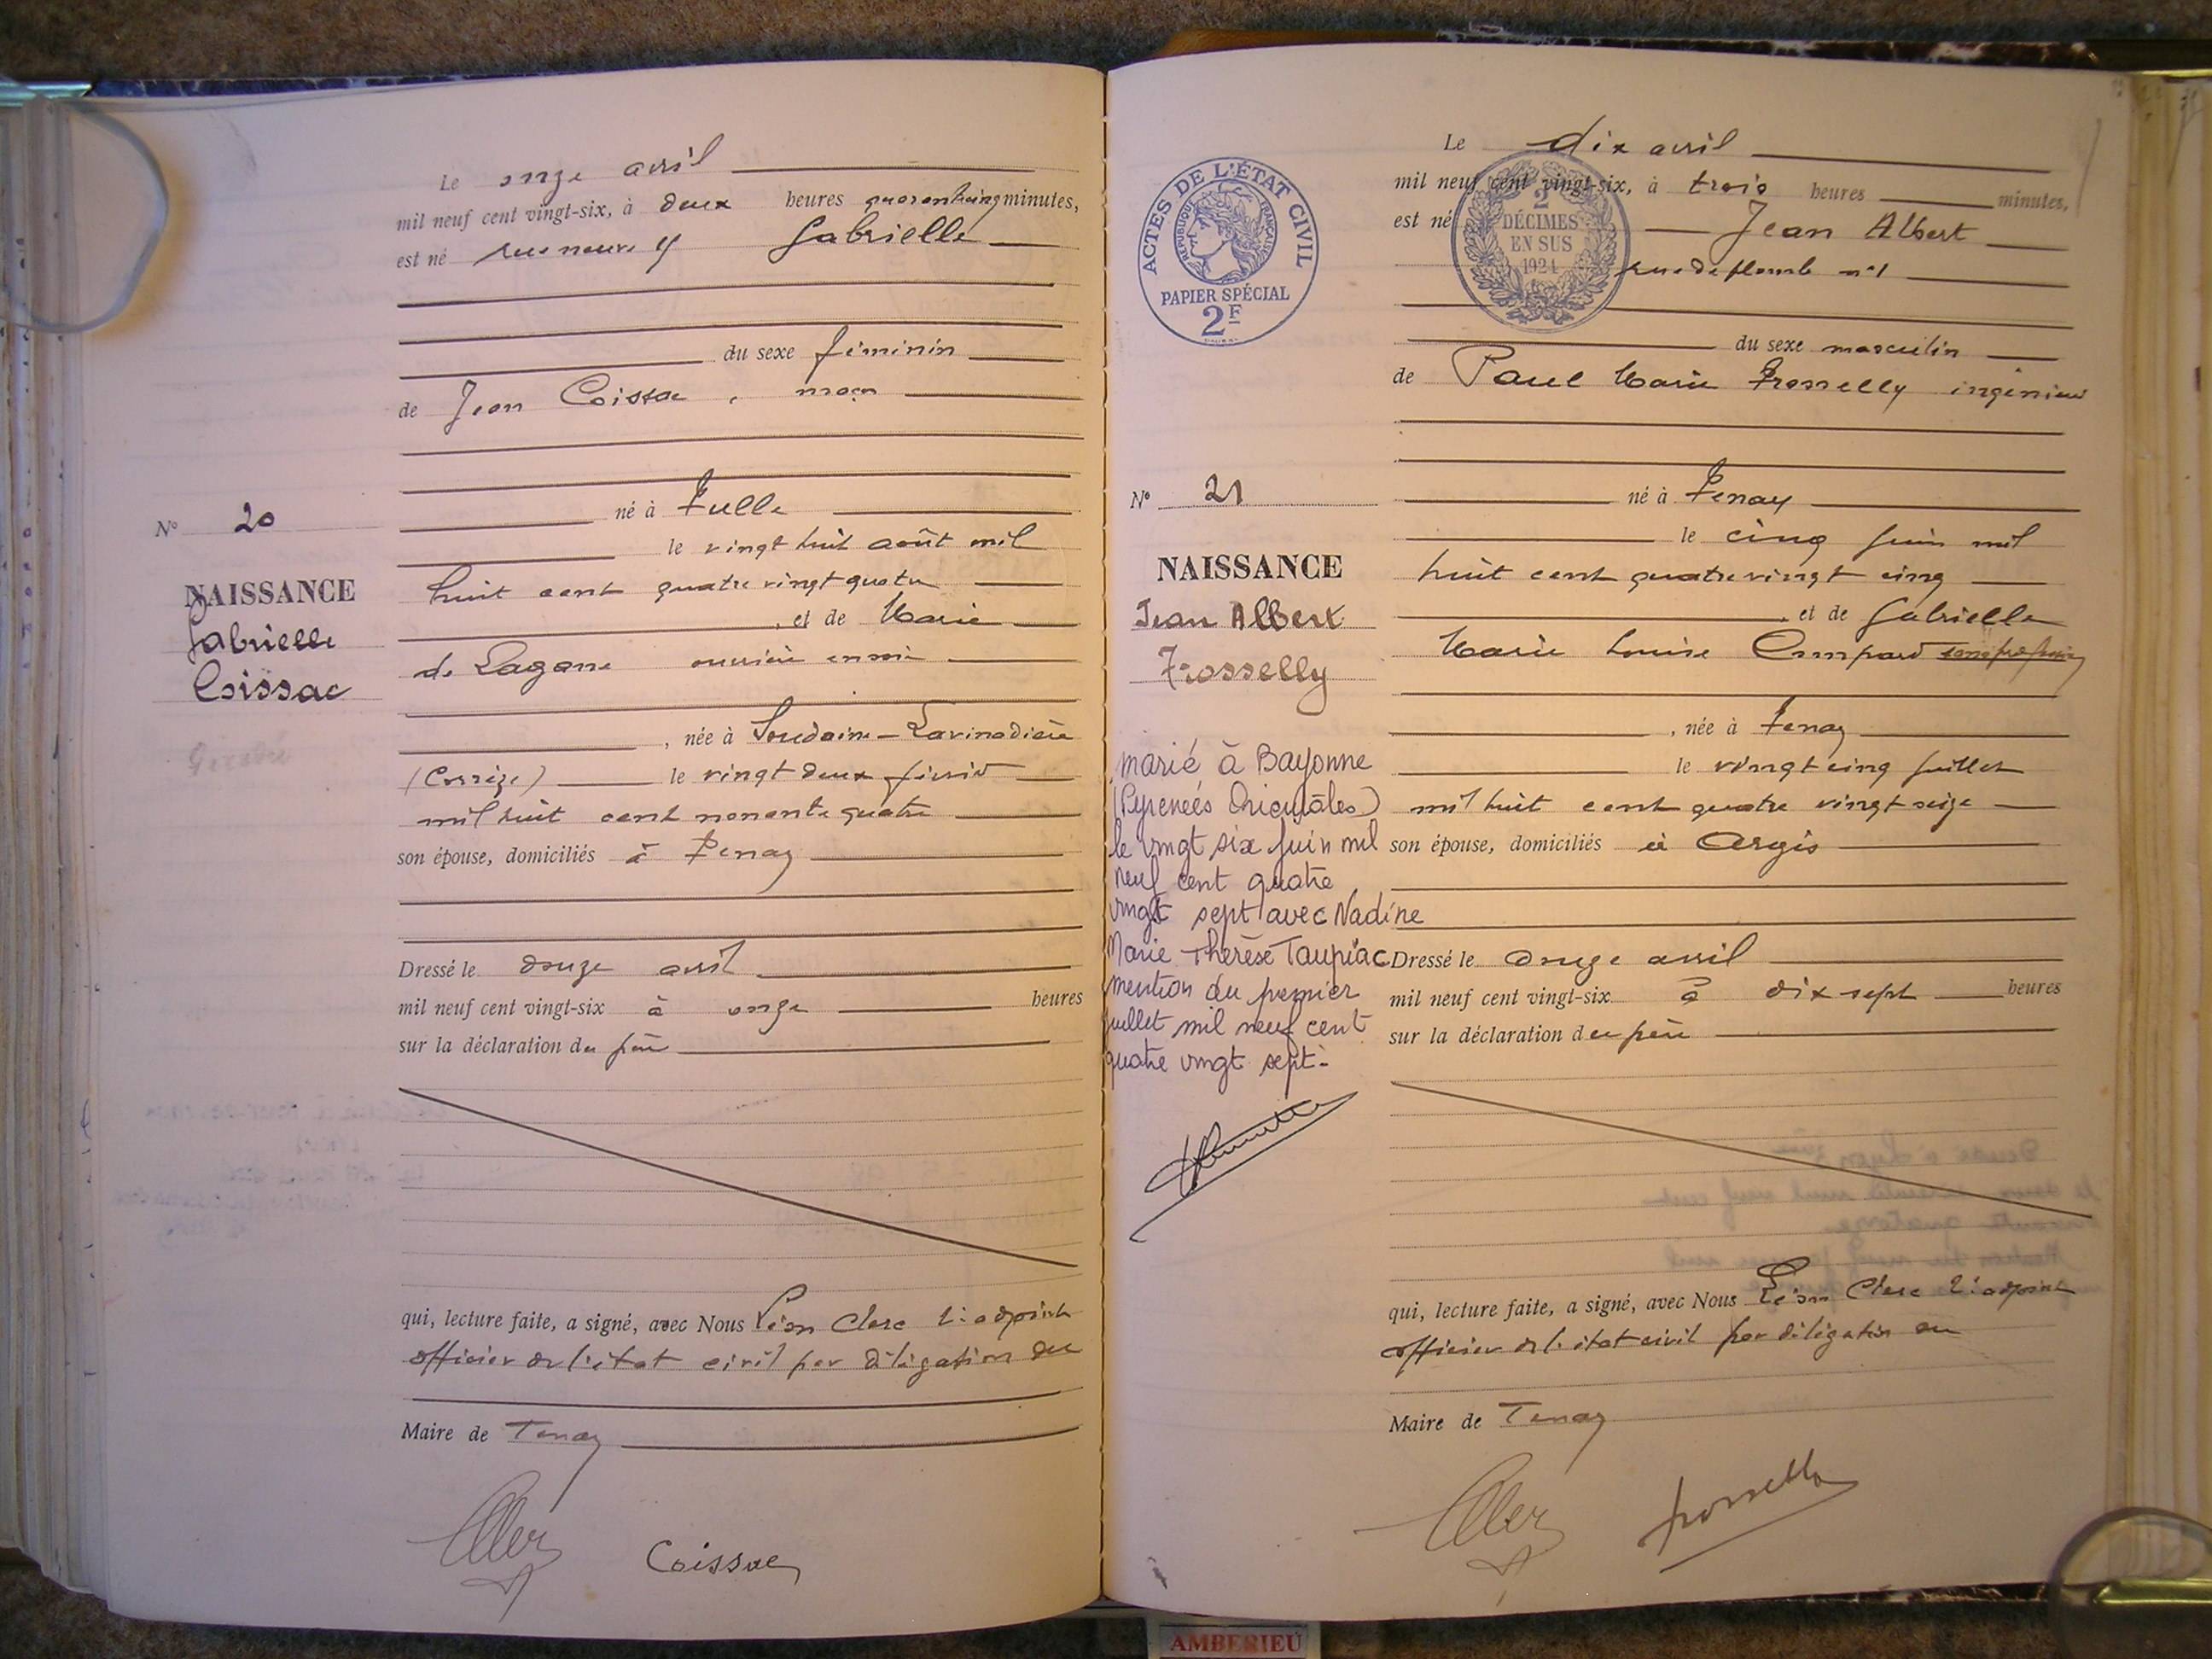 Le onze avril
mil neuf cent vingt-six, à deux heures quarante cinq minutes,
est né rue neuve Gabrielle
du sexe féminin
de Jean Coissac, maçon
né à Tulle
N° 20
le vingt huit août mil
NAISSANCE
huit cent quatre vingt quatre
Gabrielle
Coissac
, et de Marie
de Lagane ouvrière en soie
, née à Soudaine-Lavinadière
(Corrèze) le vingt deux février
mil huit cent nonante quatre
son épouse, domiciliés à Tenay
Dressé le douze avril
mil neuf cent vingt-six à onze heures
sur la déclaration du père
qui, lecture faite, a signé, avec Nous Léon Clerc 1er adjoint
officier de l'état civil par délégation du
Maire de Tenay
Coissac
Le dix avril
mil neuf cent vingt-six, à trois heures minutes,
est né Jean Albert
rue de plomb n°1
ACTES DE L'ÉTAT CIVIL
RÉPUBLIQUE FRANÇAISE
PAPIER SPÉCIAL
2F
2
DÉCIMES
EN SUS
1924
du sexe masculin
de Paul Marie Frosselly ingénieur
N° 21
né à Tenay
le cinq juin mil
NAISSANCE
Jean Albert
Frosselly
huit cent quatre vingt cinq
, et de Gabrielle
Marie Louise sans profession
, née à Tenay
le vingt cinq juillet
mil huit cent quatre vingt seize
son épouse, domiciliés à Argis
marié à Bayonne
(Pyreneés Orientales)
le vingt six juin mil
neuf cent quatre
vingt sept avec Nadine
Marie-Thérèse Taupiac
mention du premier
juillet mil neuf cent
quatre vingt sept.
Dressé le douze avril
mil neuf cent vingt-six à dix sept heures
sur la déclaration du père
qui, lecture faite, a signé, avec Nous Léon Clerc 1er adjoint
officier de l'état civil par délégation du
Maire de Tenay
frosselly
AMBERIEU